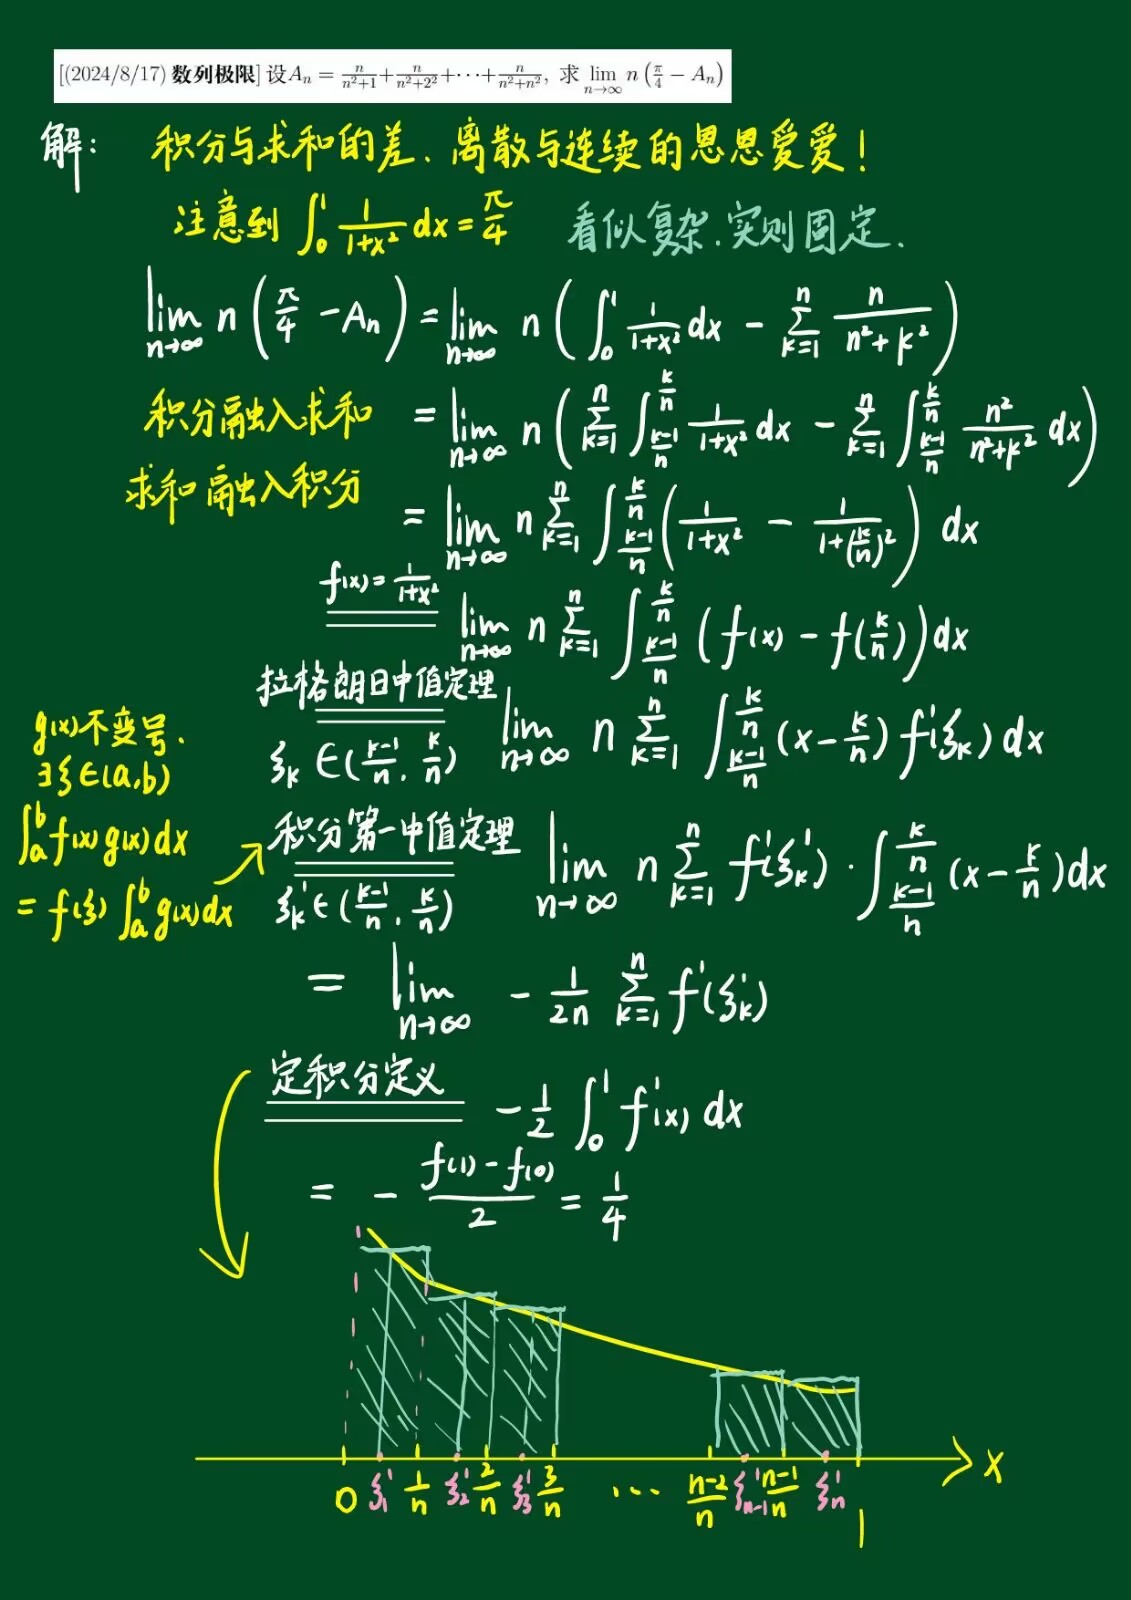 [(2024/8/17) 数列极限] 设 $A_n = \frac{n}{n^2+1} + \frac{n}{n^2+2^2} + \cdots + \frac{n}{n^2+n^2}$, 求 $\lim_{n\to\infty} n\left(\frac{\pi}{4} - A_n\right)$
解: 积分与求和的差. 离散与连续的恩恩爱爱!
注意到 $\int_0^1 \frac{1}{1+x^2} dx = \frac{\pi}{4}$ 看似复杂. 实则固定.
$\lim_{n\to\infty} n\left(\frac{\pi}{4} - A_n\right) = \lim_{n\to\infty} n\left(\int_0^1 \frac{1}{1+x^2} dx - \sum_{k=1}^n \frac{n}{n^2+k^2}\right)$
积分融入求和 $= \lim_{n\to\infty} n\left(\sum_{k=1}^n \int_{\frac{k-1}{n}}^{\frac{k}{n}} \frac{1}{1+x^2} dx - \sum_{k=1}^n \int_{\frac{k-1}{n}}^{\frac{k}{n}} \frac{n^2}{n^2+k^2} dx\right)$
求和融入积分
$= \lim_{n\to\infty} n \sum_{k=1}^n \int_{\frac{k-1}{n}}^{\frac{k}{n}} \left(\frac{1}{1+x^2} - \frac{1}{1+(\frac{k}{n})^2}\right) dx$
$f(x) = \frac{1}{1+x^2}$ $\lim_{n\to\infty} n \sum_{k=1}^n \int_{\frac{k-1}{n}}^{\frac{k}{n}} \left(f(x) - f(\frac{k}{n})\right) dx$
拉格朗日中值定理
$\xi_k \in (\frac{k-1}{n}, \frac{k}{n})$ $\lim_{n\to\infty} n \sum_{k=1}^n \int_{\frac{k-1}{n}}^{\frac{k}{n}} (x - \frac{k}{n}) f'(\xi_k) dx$
g(x)不变号.
$\exists \xi \in (a,b)$
$\int_a^b f(x) g(x) dx$
$= f(\xi) \int_a^b g(x) dx$
积分第一中值定理
$\xi_k' \in (\frac{k-1}{n}, \frac{k}{n})$ $\lim_{n\to\infty} n \sum_{k=1}^n f'(\xi_k') \cdot \int_{\frac{k-1}{n}}^{\frac{k}{n}} (x - \frac{k}{n}) dx$
$= \lim_{n\to\infty} -\frac{1}{2n} \sum_{k=1}^n f'(\xi_k')$
定积分定义 $-\frac{1}{2} \int_0^1 f'(x) dx$
$= -\frac{f(1) - f(0)}{2} = \frac{1}{4}$
0 $\xi_1'$ $\frac{1}{n}$ $\xi_2'$ $\frac{2}{n}$ $\xi_3'$ $\frac{3}{n}$ ... $\frac{n-2}{n}$ $\xi_{n-1}'$ $\frac{n-1}{n}$ $\xi_n'$ 1 x